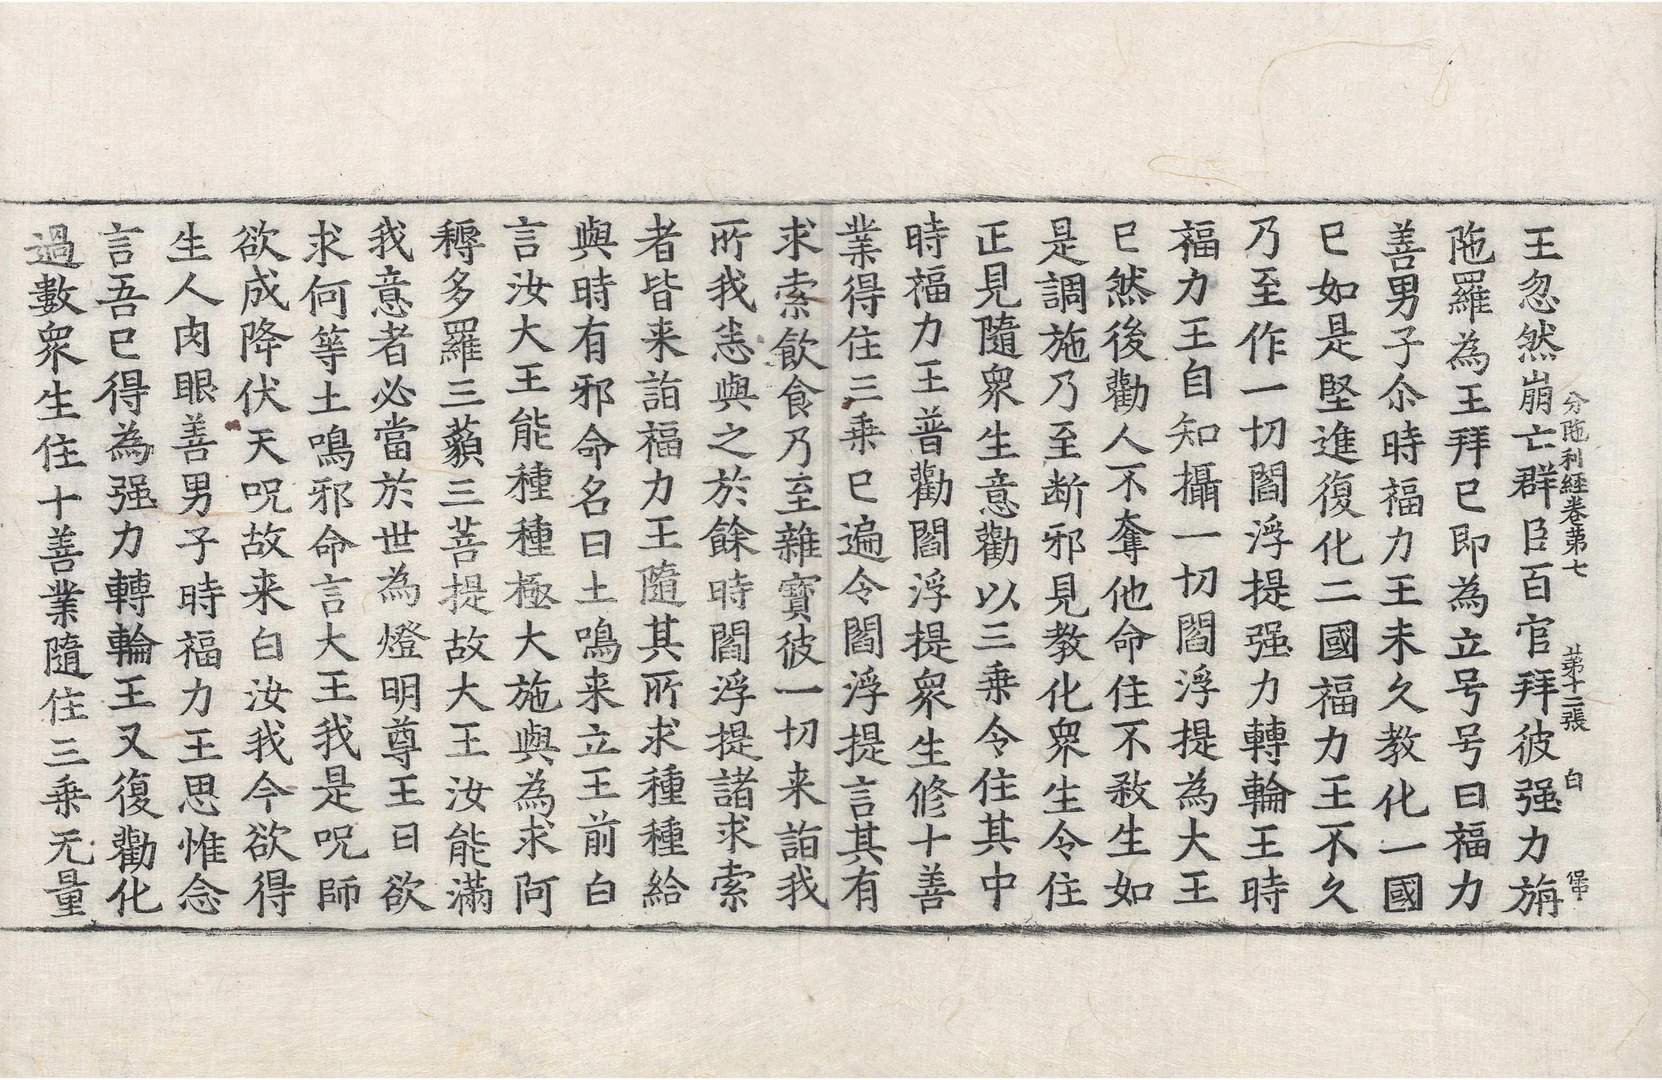 分陁利経卷第七　第十二張　白
王忽然崩亡群臣百官拜彼强力旃
陁羅為王拜已即為立号号曰福力
善男子尒時福力王未久教化一國
已如是堅進復化二國福力王不久
乃至作一切閻浮提强力轉輪王時
福力王自知攝一切閻浮提為大王
已然後勸人不奪他命住不煞生如
是調施乃至断邪見教化衆生令住
正見隨衆生意勸以三乗令住其中
時福力王普勸閻浮提衆生修十善
業得住三乗已遍令閻浮提言其有
求索飲食乃至雜寳彼一切来詣我
所我恙與之於餘時閻浮提諸求索
者皆来詣福力王隨其所求種種給
與時有邪命名曰土鳴来立王前白
言汝大王能種種極大施與為求阿
耨多羅三藐三菩提故大王汝能滿
我意者必當於世為燈明尊王曰欲
求何等土鳴邪命言大王我是呪師
欲成降伏天呪故来白汝我今欲得
生人肉眼善男子時福力王思惟念
言吾已得為强力轉輪王又復勸化
過數衆生住十善業隨住三乗无量